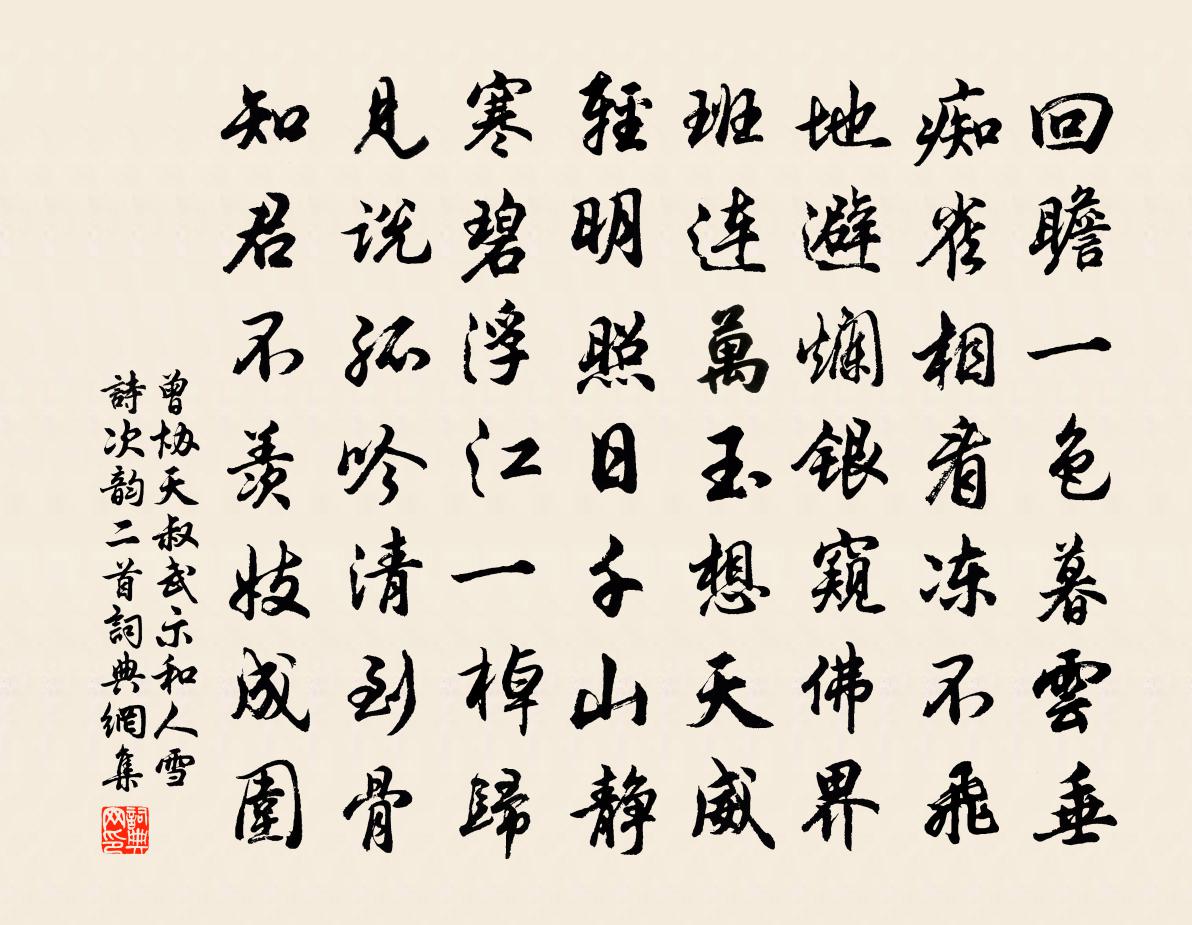 回瞻一色暮雲垂
痴雀相看冻不飛
地避爛銀窺佛界
班連萬玉想天威
輕明照日千山静
寒碧浮江一棹歸
見説孤吟清到骨
知君不羨妓成圍
曾协天叔武示和人雪
詩次韵二首詞典網集
詞典網印